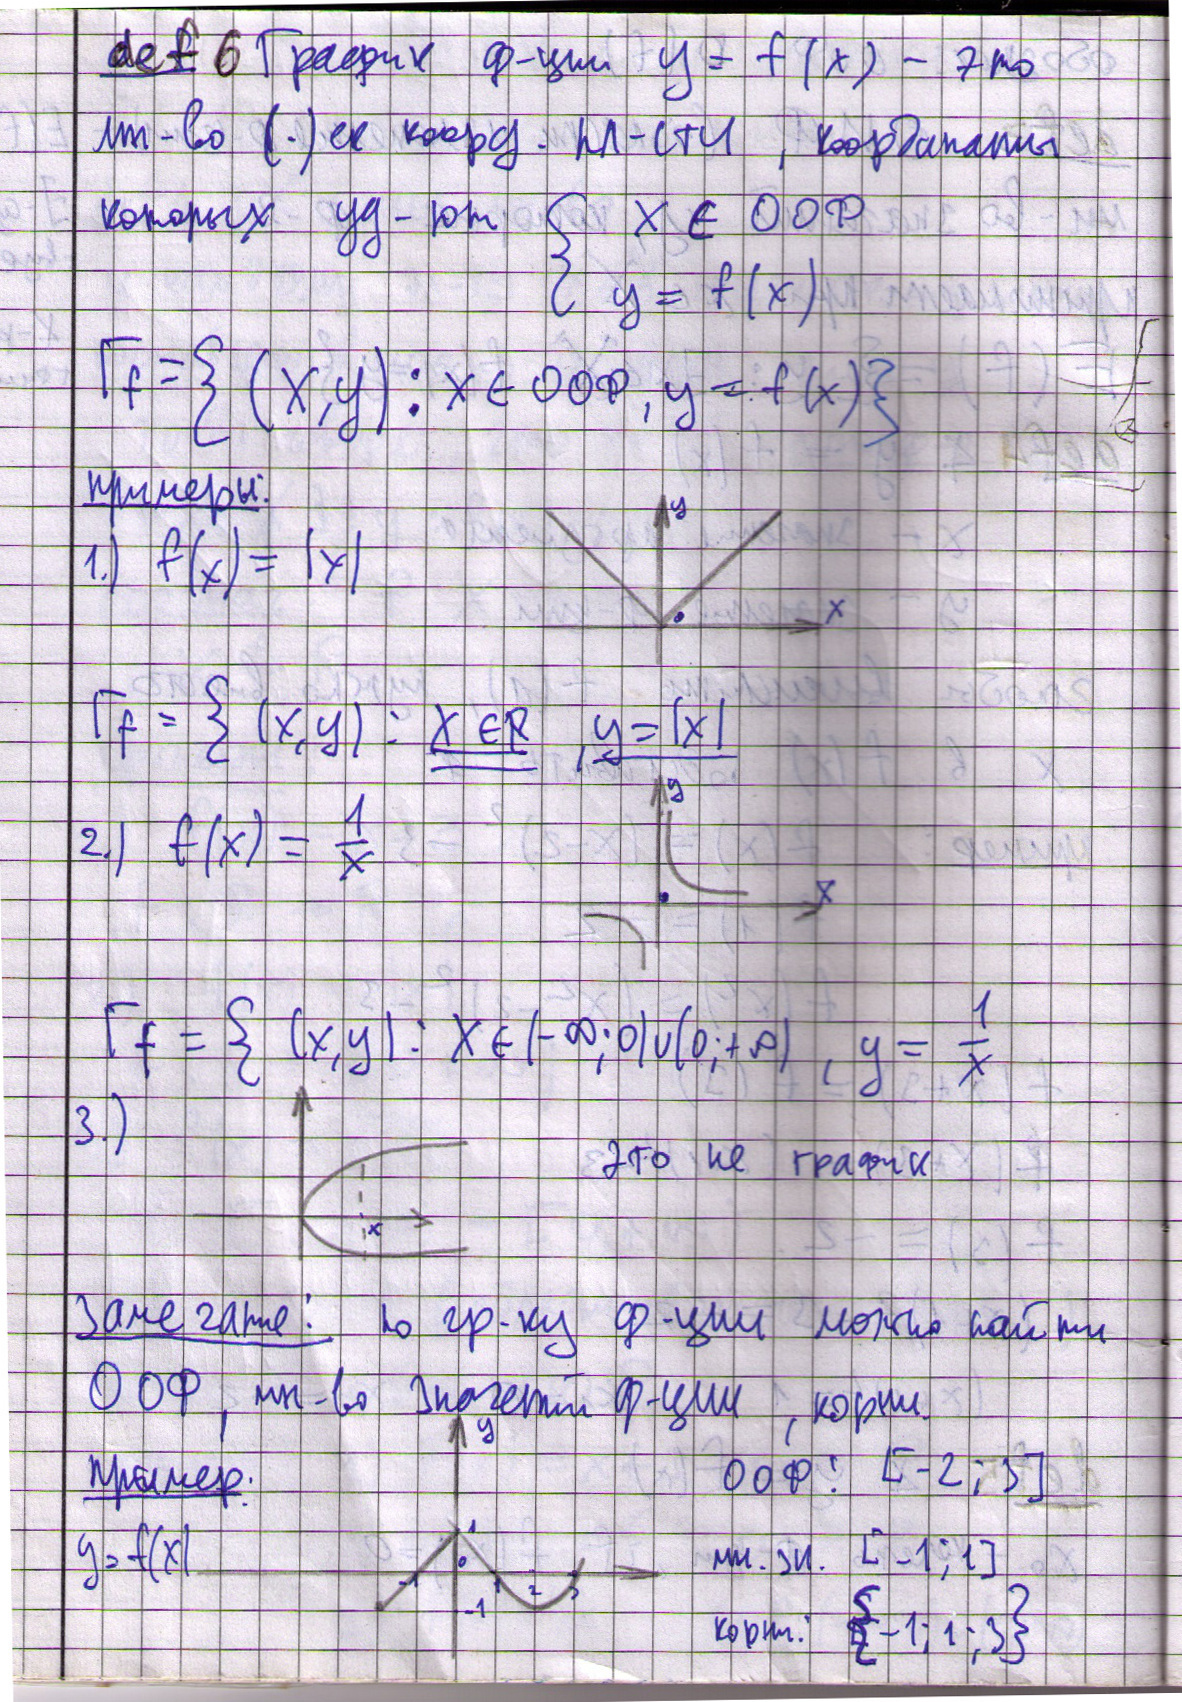 def 6 График ф-ции y = f(x) - это
мн-во (·)ек коорд. пл-сти, координаты
которых уд-ют { x ∈ ООФ
y = f(x)
Γf = { (x,y) : x ∈ ООФ, y = f(x) }
примеры:
1.) f(x) = |x|
y
0
x
Γf = { (x,y) : x ∈ R, y = |x|
2.) f(x) = 1/x
y
x
Γf = { (x,y) : x ∈ (-∞;0)∪(0;+∞), y = 1/x
3.)
Это не график
x
Замечание: по гр-ку ф-ции можно найти
ООФ, мн-во значений ф-ции, корни.
y
пример:
ООФ: [-2;3]
y = f(x)
1
0
-1 1 2 3
-1
мн. зн. [-1;1]
корни: {-1;1;3}